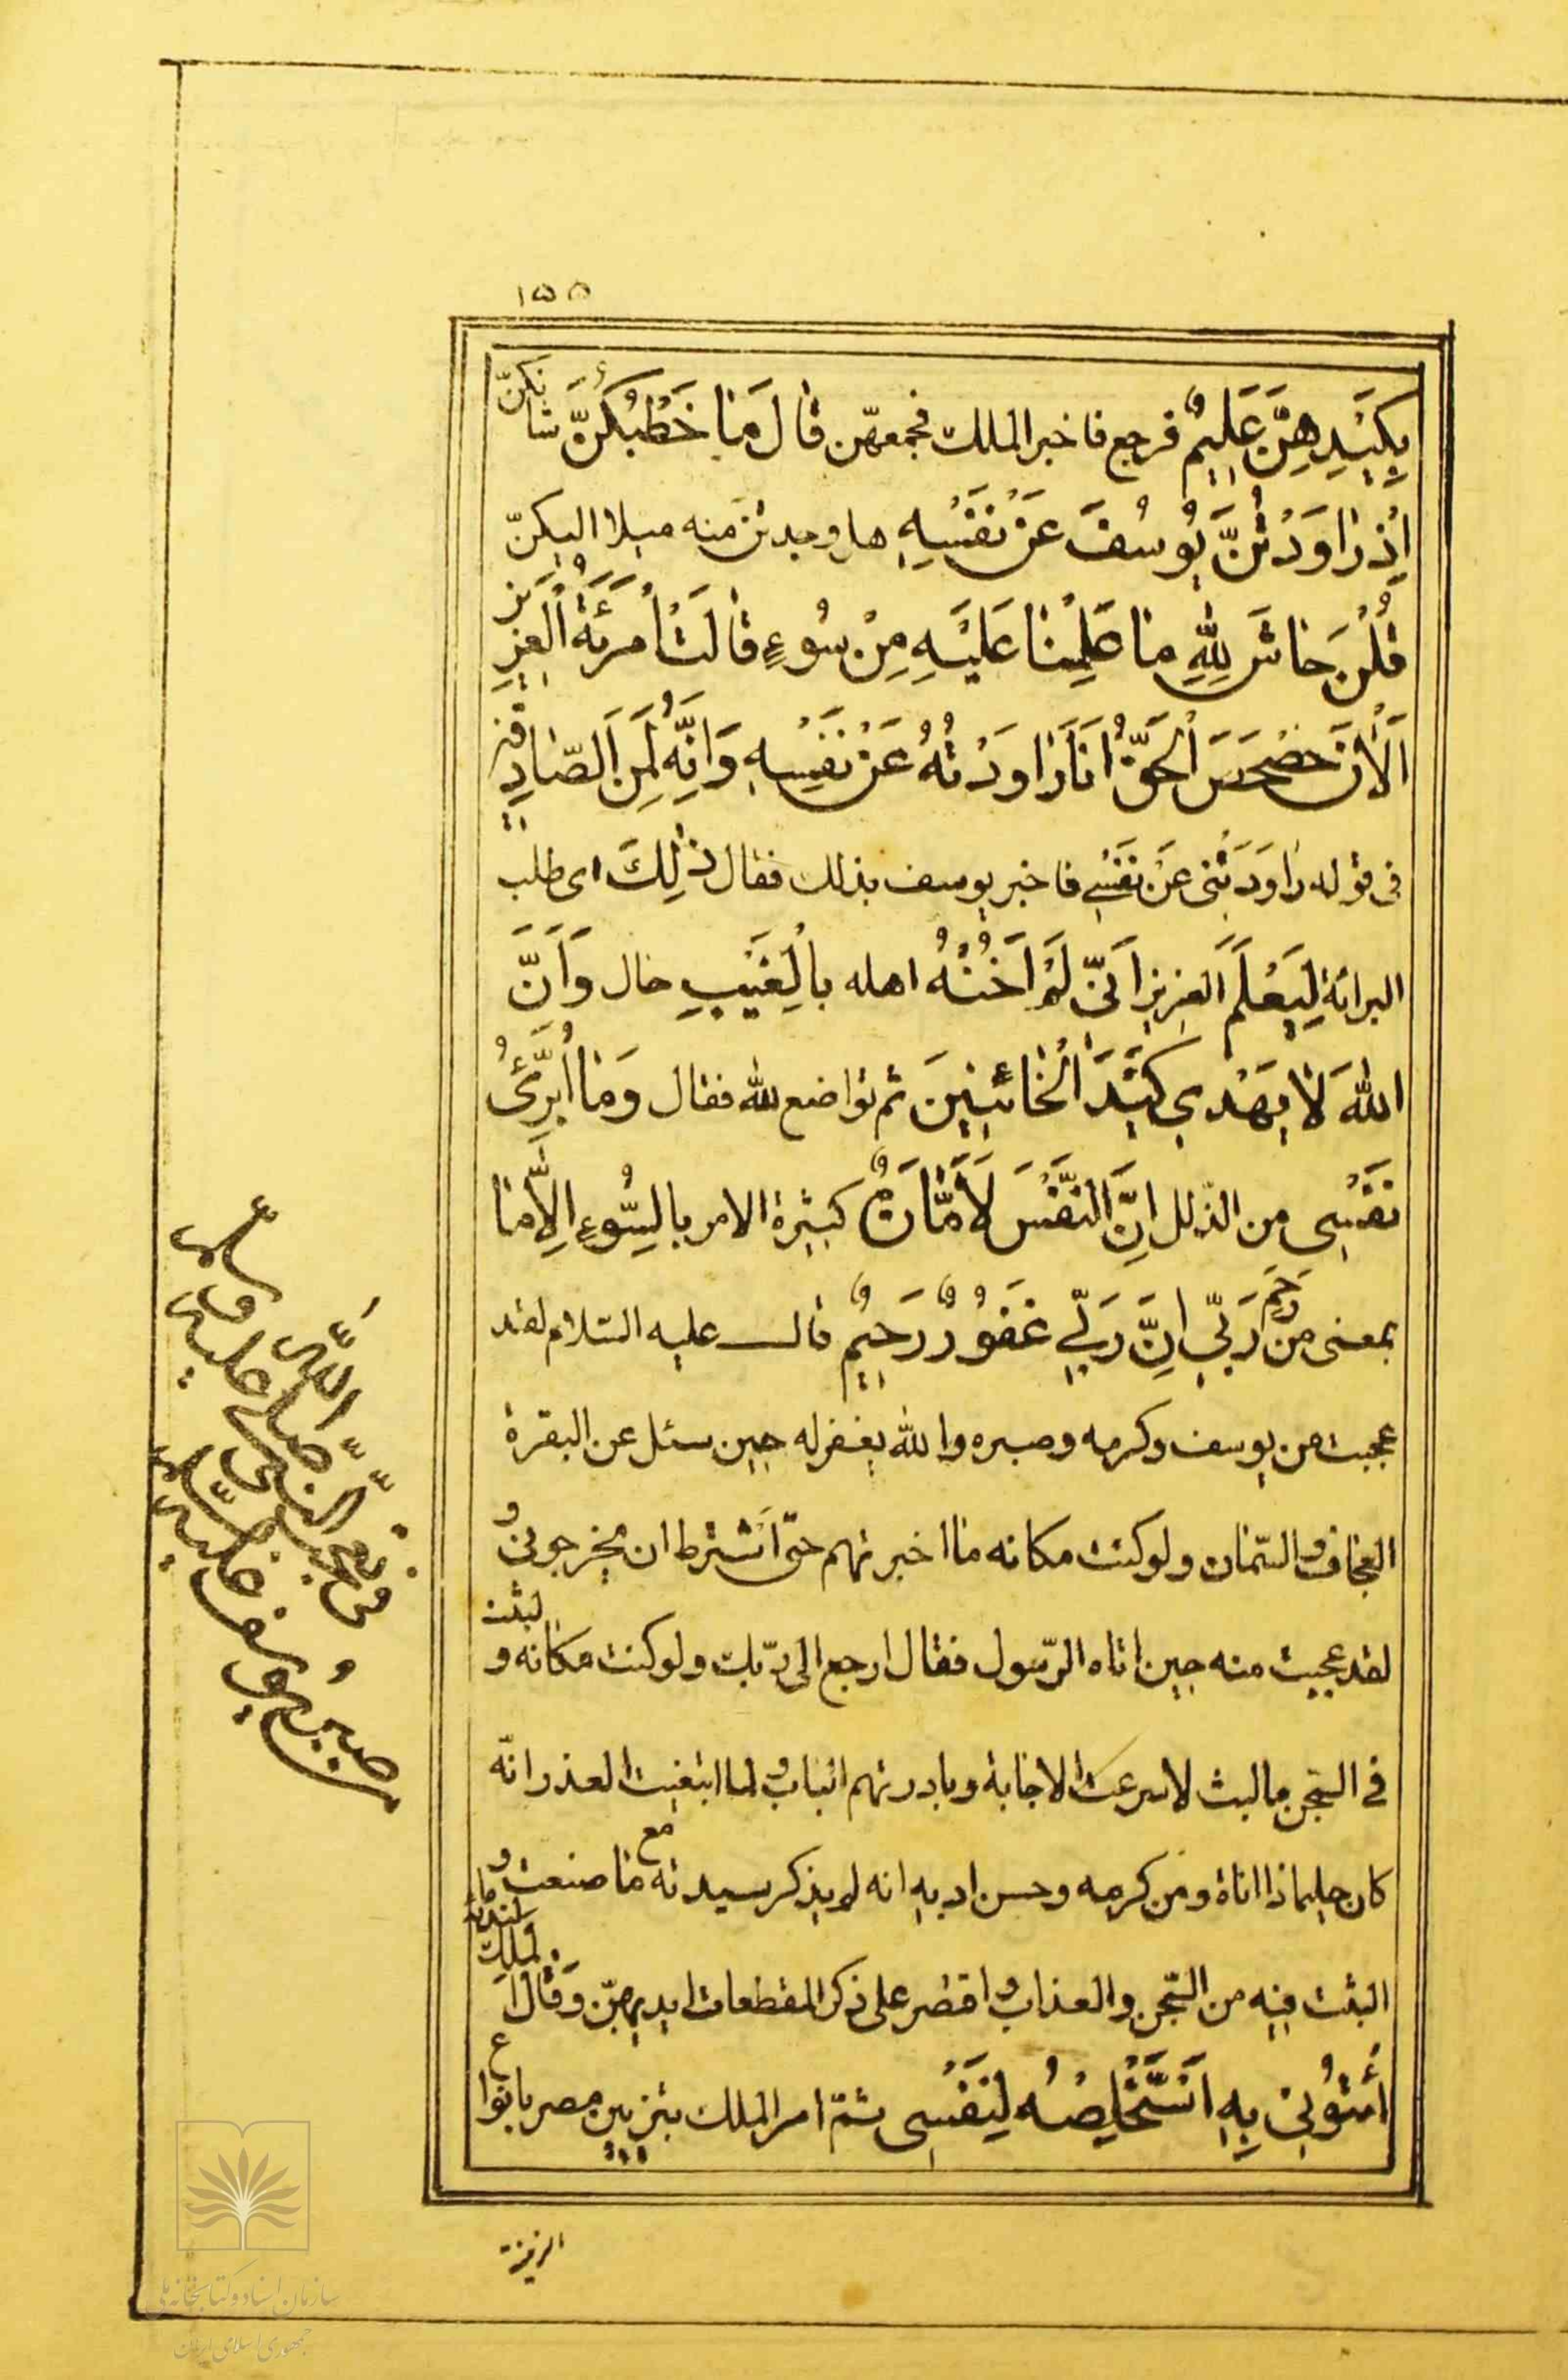 ١٥٥
بِكَيْدِهِنَّ عَلِيمٌ فرجع فاخبر الملك فجمعهن قَالَ مَا خَطْبُكُنَّ شانكنّ
اِذْ رَاوَدْتُنَّ يُوسُفَ عَنْ نَفْسِهِ هل وجدتن منه ميلا اليكنّ
قُلْنَ حَاشَ لِلّٰهِ مَا عَلِمْنَا عَلَيْهِ مِنْ سُوءٍ قَالَتْ اُمْرَئَةُ الْعَزِيزِ
اَلْاٰنَ حَصْحَصَ الْحَقُّ اَنَا رَاوَدْتُهُ عَنْ نَفْسِهِ وَاِنَّهُ لَمِنَ الصَّادِقِينَ
فى قوله رَاوَدَتْنى عَنْ نَفْسِي فاخبر يوسف بذلك فقال ذٰلِكَ اى طلب
البرائة لِيَعْلَمَ العزيز اَنّى لَمْ اَخُنْهُ اهله بِالْغَيْبِ حال وَاَنَّ
اللّٰهَ لَا يَهْدِي كَيْدَ الْخَائِنِينَ ثم تواضع لله فقال وَمَا اُبَرِّئُ
نَفْسِى من الذّلل اِنَّ النَّفْسَ لَاَمَّارَةٌ كثيرة الامر بِالسُّوءِ اِلَّا مَا
رَحِمَ
بمعنى من رَبّي اِنَّ رَبّي غَفُورٌ رَحِيمٌ قال عليه السّلام لقد
عجبت من يوسف وكرمه وصبره والله يغفر له حين سئل عن البقرة
العجاف والسّمان ولو كنت مكانه ما اخبرتهم حتّى اَشترط ان يخرجونى و
لقد عجبت منه حين اتاه الرّسول فقال ارجع الى ربّك ولو كنت مكانه و لبثت
فى السّجن ما لبث لاسرعت الاجابة وبادرتهم الباب و لما ابتغيت العذر انّه
كان حليما ذا اناة ومن كرمه وحسن ادبه انه لم يذكر سيدته مع ما صنعت و
البثت فيه من السّجن والعذاب و اقتصر على ذكر المقطعات ايديهنّ وَقَالَ الْمَلِكُ
اُئْتُونى بِهِ اَسْتَخْلِصْهُ لِنَفْسِى ثمّ امر الملك بتزيين مصر بانواع
الزينة
من تعجّب النّبى صلّى اللّٰه عليه و سلّم
صبر يوسف عليه السّلام
سازمان اسناد و کتابخانه ملی
جمهوری اسلامی ایران